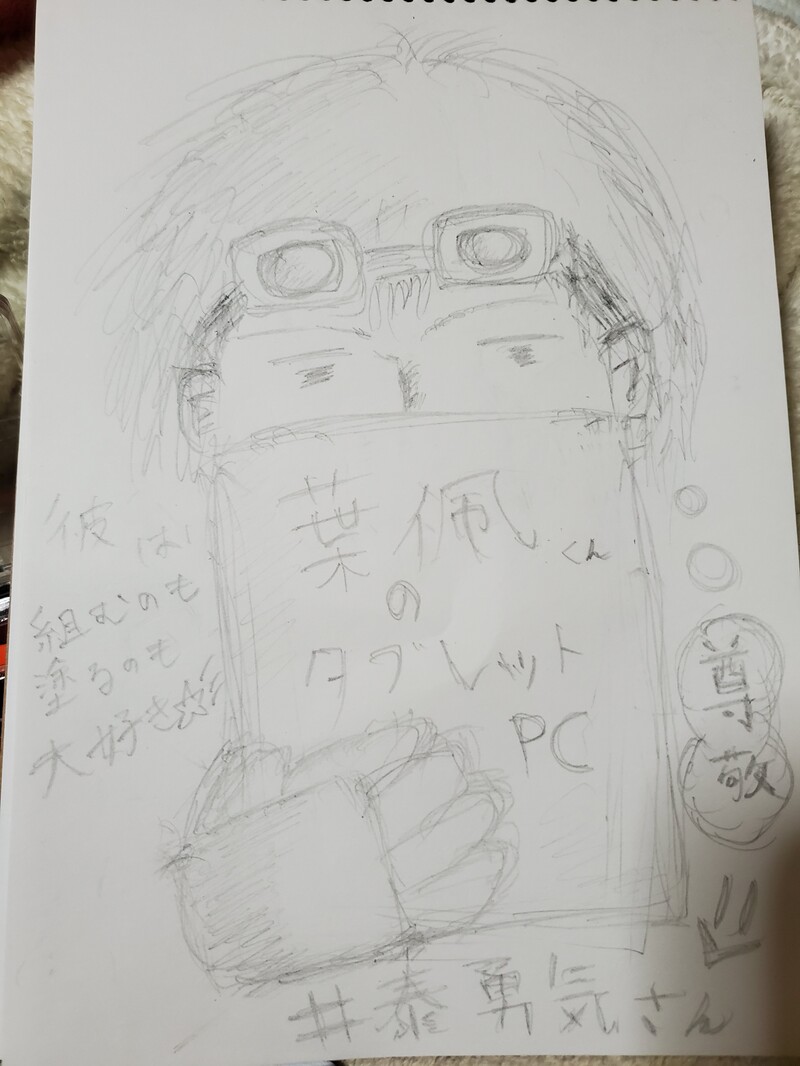 葉佩くん
の
タブレット
PC
彼は
組むのも
塗るのも
大好き☆
尊敬
#泰勇気さん